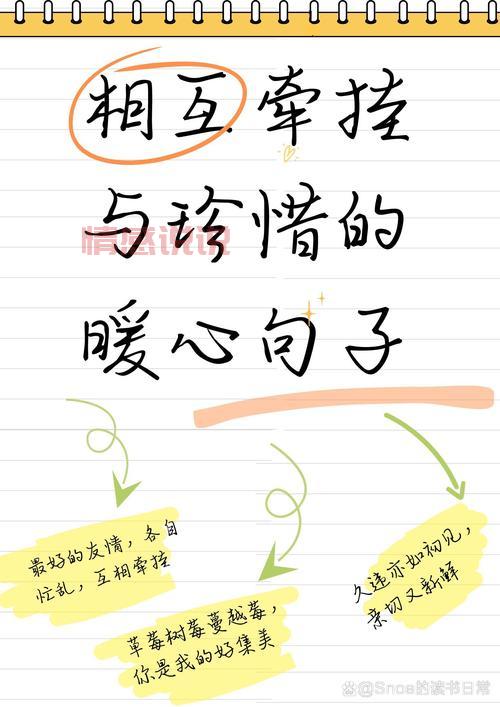 相互牵挂
与珍惜的
情感说说
暖心句子
最好的友情，各自
忙乱，互相牵挂
草莓树莓蔓越莓，
你是我的好集美
久违亦如初见，
亲切又新鲜
@Snoa的读书日常